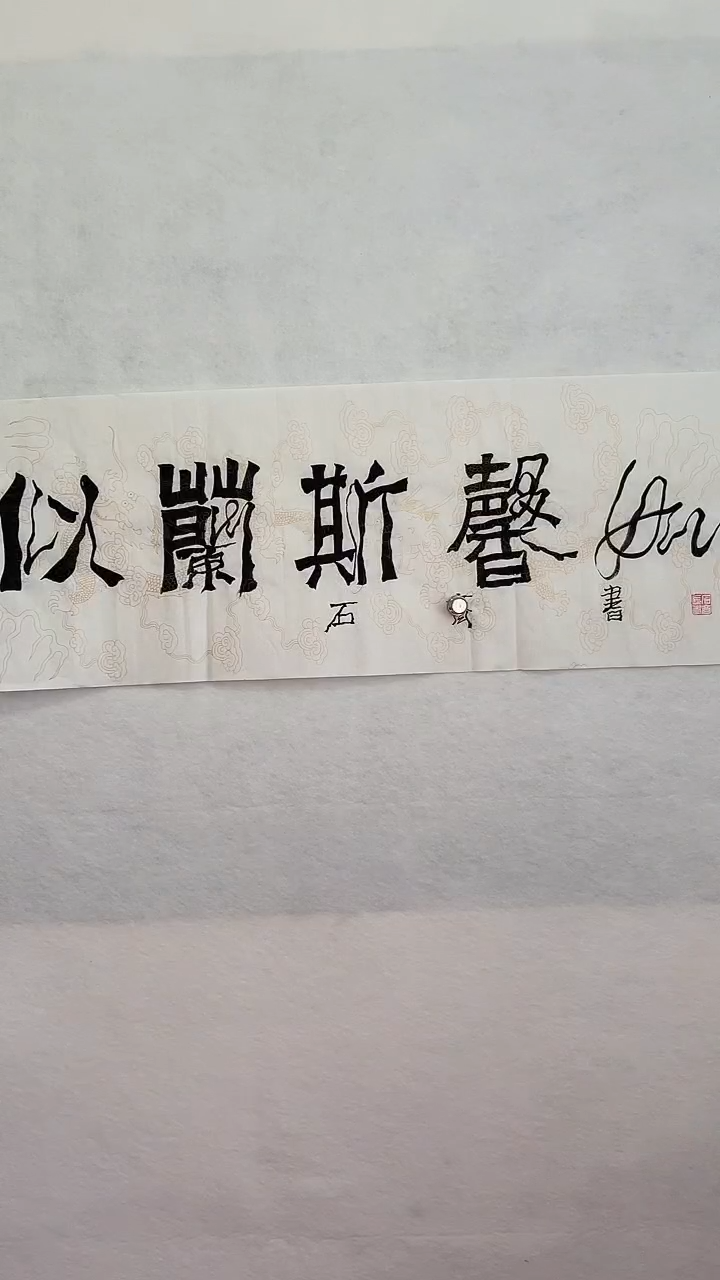 似蘭斯馨如
石 書